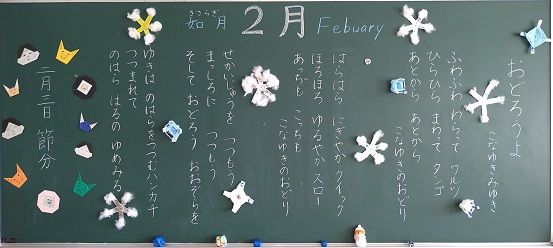 きさらぎ
如月 2月 Febuary
おどろうよ
こなゆきみゆき
ふわふわ わらって ワルツ
ひらひら まわって タンゴ
あとから あとから
こなゆきのおどり
ぱらぱら にぎやか クイック
ほろほろ ゆるやか スロー
あちも こちも
こなゆきのおどり
せかいじゅうを つつもう
まっしろに つつもう
そして おどろう おおぞらを
ゆきは のはらをつつむハンカチ
つつまれて
のはら はるの ゆめみる
二月三日 節分